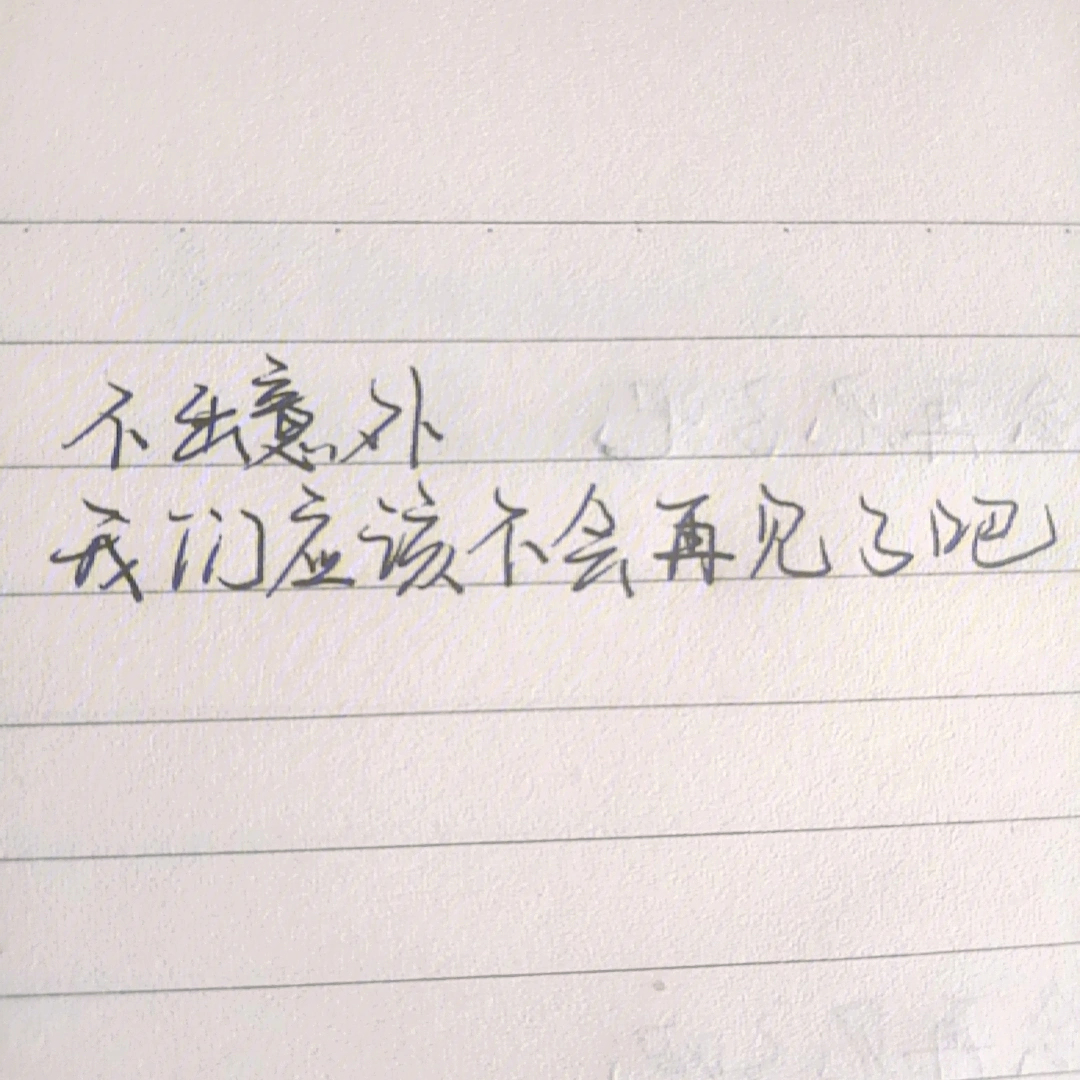 不出意外
我们应该不会再见了吧